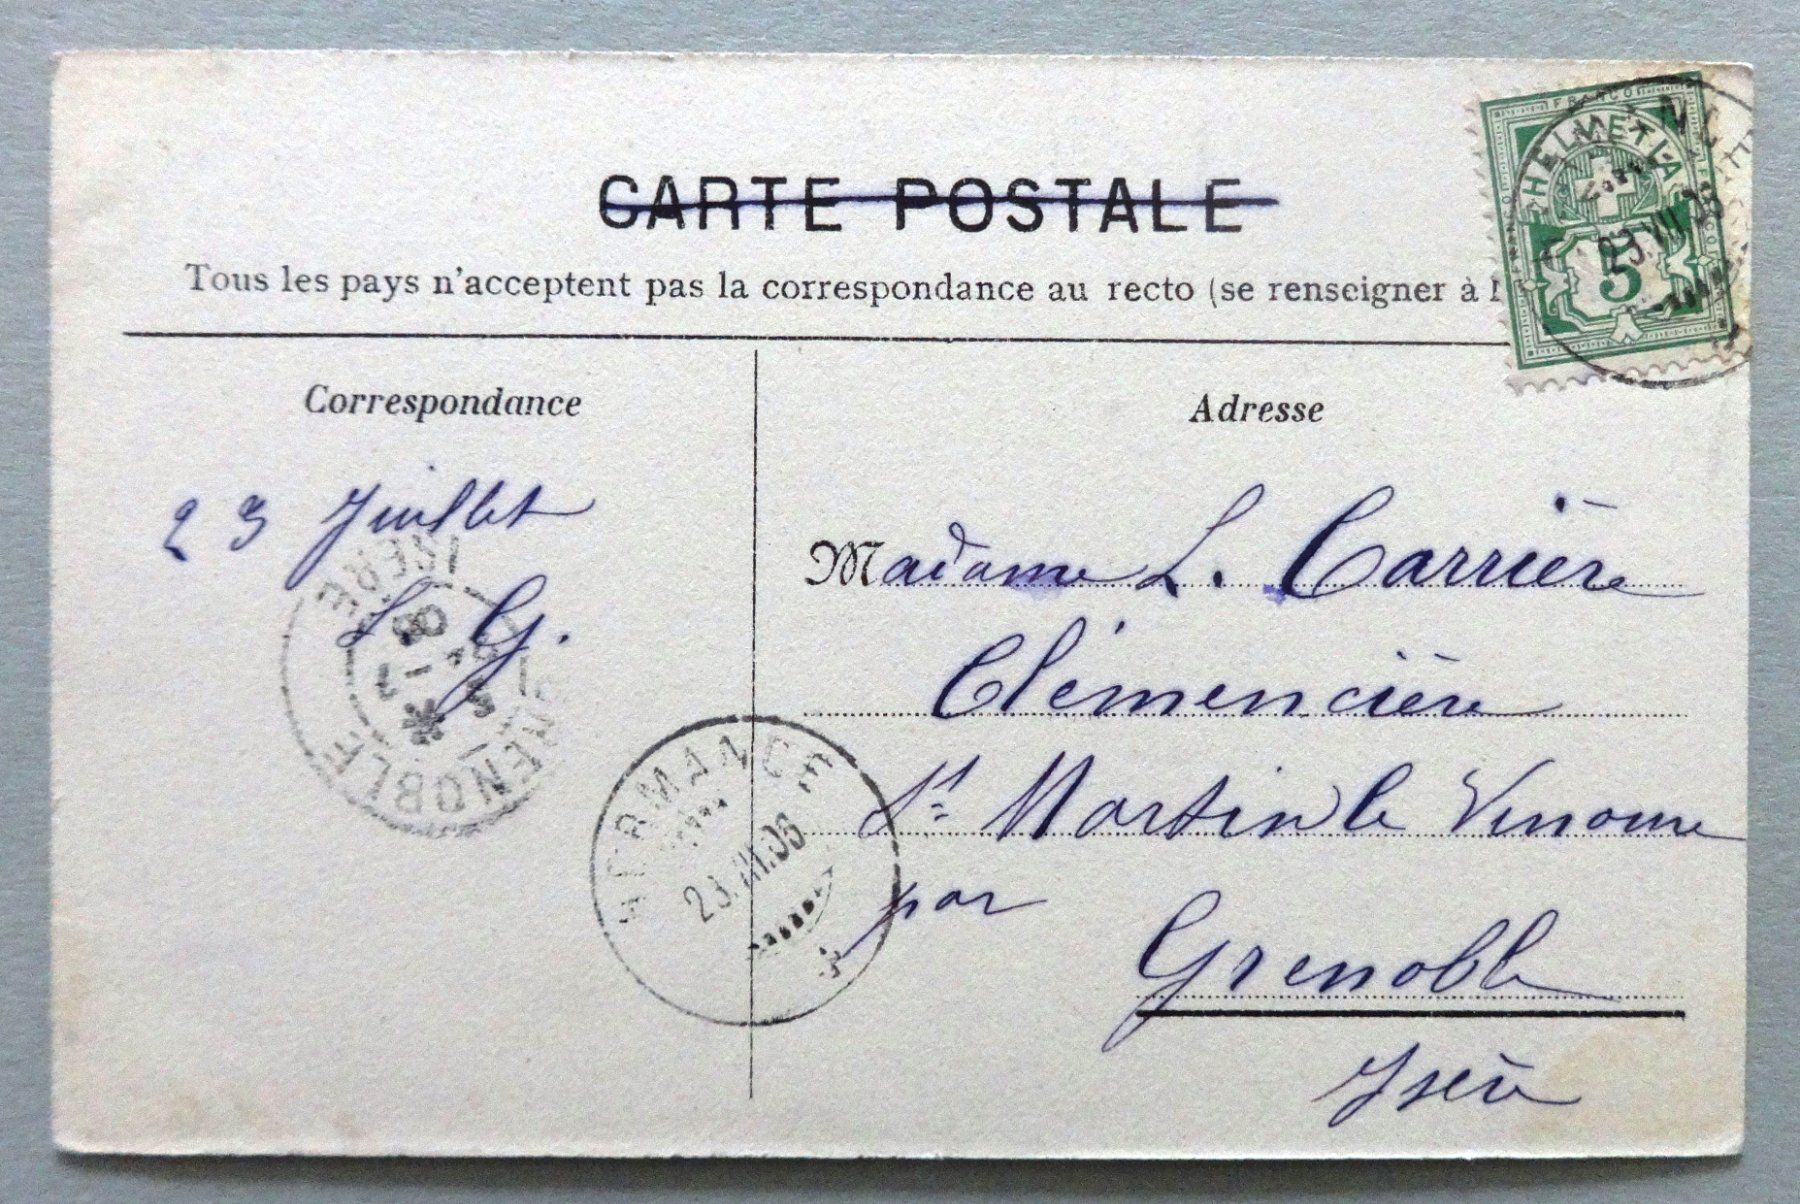 CARTE POSTALE
Tous les pays n'acceptent pas la correspondance au recto (se renseigner à
FRANCO
HELVETIA
5
23.VII.06
Correspondance
Adresse
23 Juillet
L G.
Madame L. Carrière
Clémencière
St Martin le Vinoux
par
Grenoble
Isère
GRENOBLE
ISERE
HERMANCE
23.VII.06